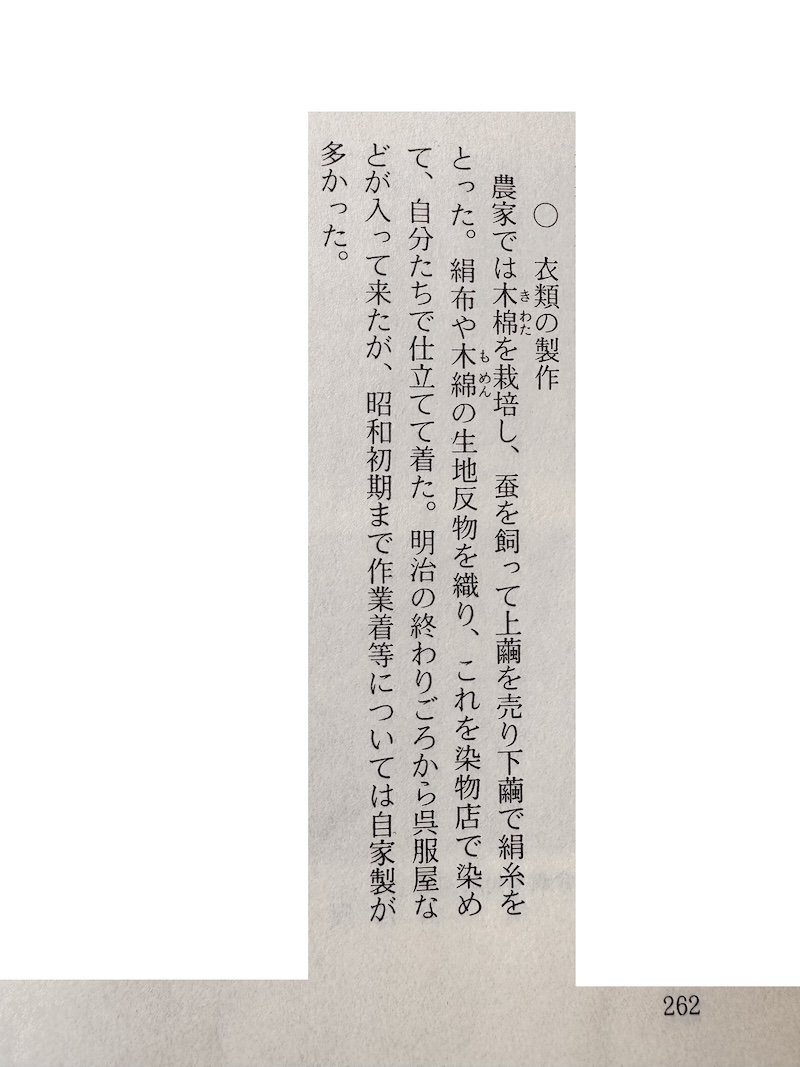 ○　衣類の製作
農家では木棉を栽培し、蚕を飼って上繭を売り下繭で絹糸を
きわた
とった。絹布や木綿の生地反物を織り、これを染物店で染め
もめん
て、自分たちで仕立てて着た。明治の終わりごろから呉服屋な
どが入って来たが、昭和初期まで作業着等については自家製が
多かった。
262